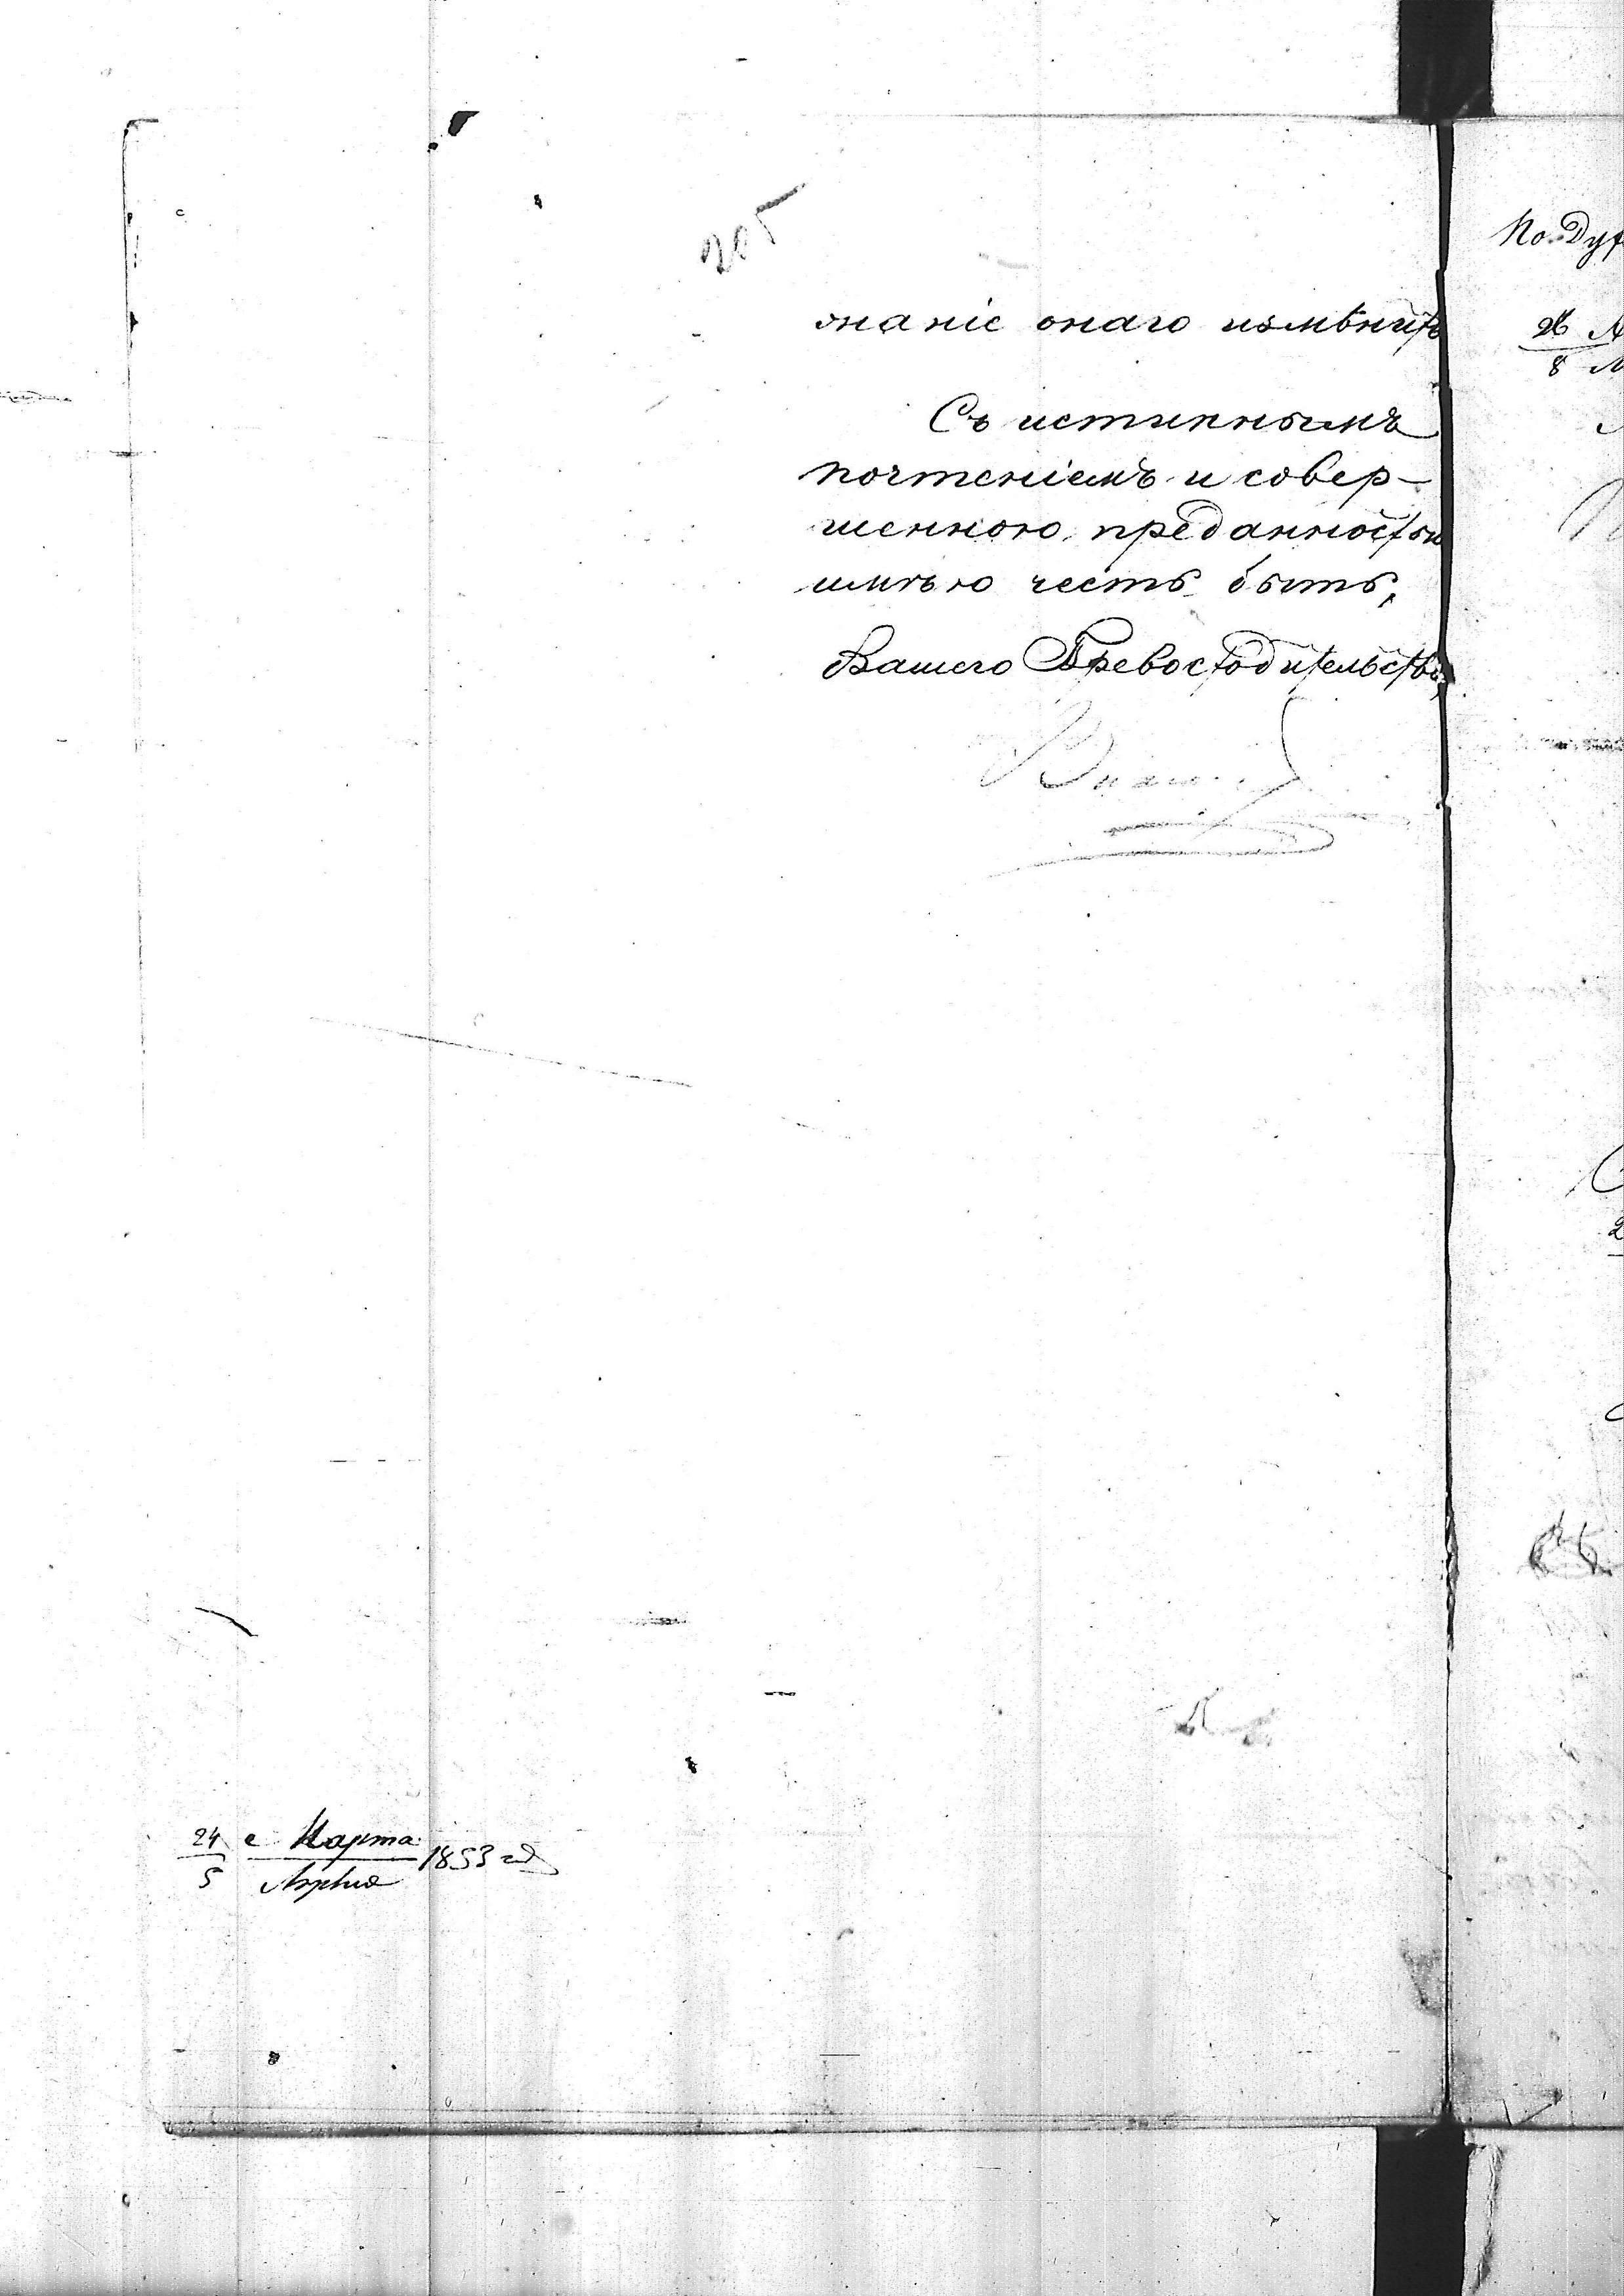 205
знаніе онаго измѣнить
Съ истиннымъ
почтеніемъ и совер-
шенною преданностью
имѣю честь быть,
Вашего Превосходительства,
24 Марта
5 Апрѣля
1853 год
По
26
8